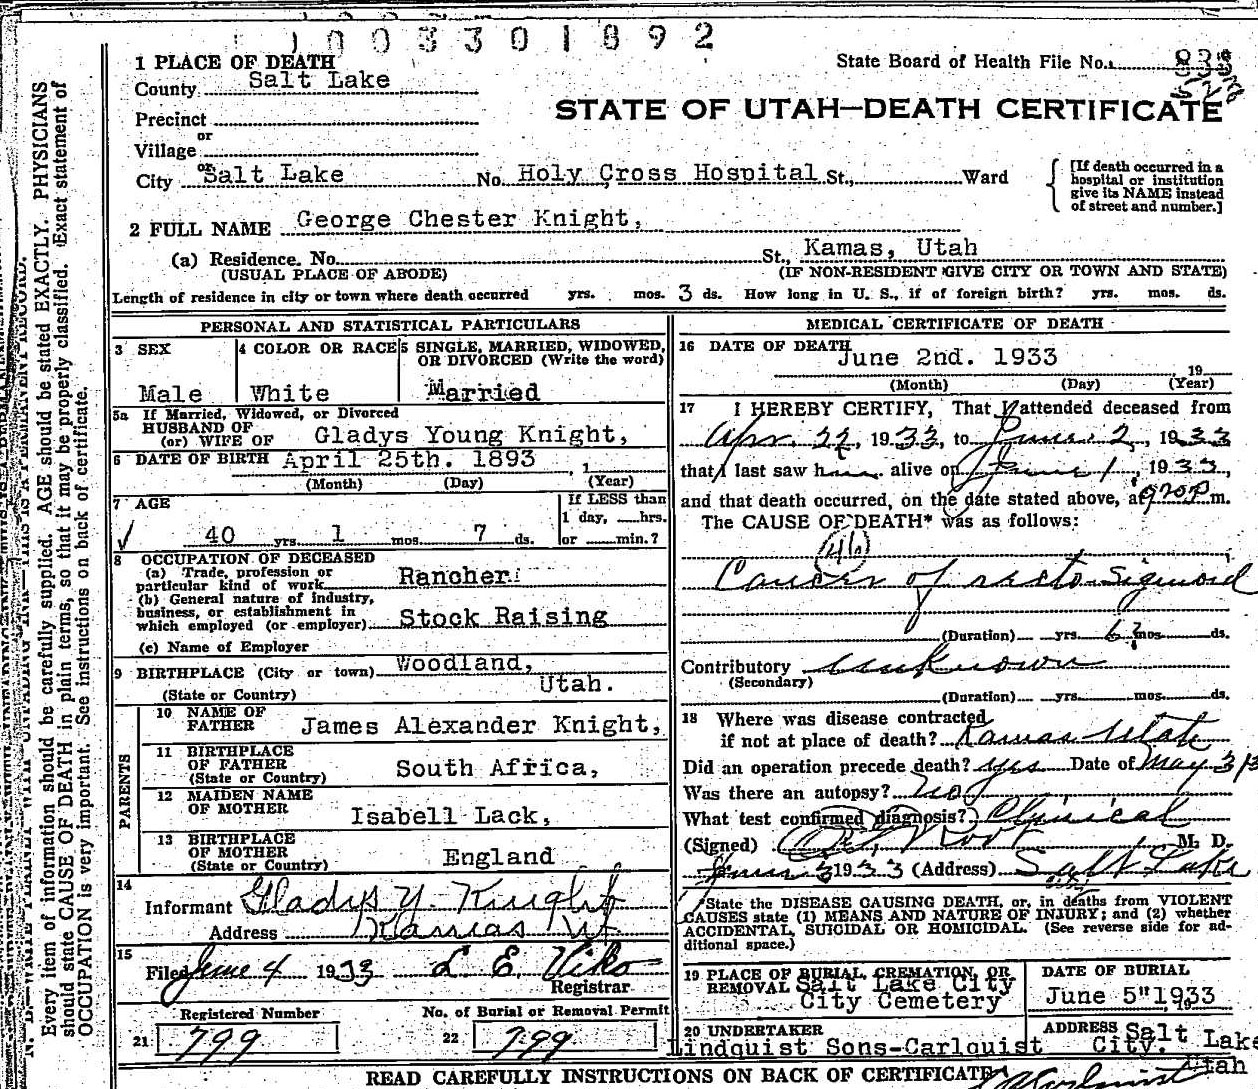 1003301892
1 PLACE OF DEATH
State Board of Health File No. 833
County Salt Lake
STATE OF UTAH—DEATH CERTIFICATE
Precinct
or
Village
or
City Salt Lake No. Holy Cross Hospital St., Ward
[If death occurred in a
hospital or institution
give its NAME instead
of street and number.]
2 FULL NAME George Chester Knight,
(a) Residence. No. St., Kamas, Utah
(USUAL PLACE OF ABODE) (IF NON-RESIDENT GIVE CITY OR TOWN AND STATE)
Length of residence in city or town where death occurred yrs. mos. 3 ds. How long in U. S., if of foreign birth? yrs. mos. ds.
PERSONAL AND STATISTICAL PARTICULARS
3 SEX
Male
4 COLOR OR RACE
White
5 SINGLE, MARRIED, WIDOWED,
OR DIVORCED (Write the word)
Married
5a If Married, Widowed, or Divorced
HUSBAND OF
(or) WIFE OF Gladys Young Knight,
6 DATE OF BIRTH April 25th. 1893 , 1
(Month) (Day) (Year)
7 AGE
40 yrs. 1 mos. 7 ds.
If LESS than
1 day, hrs.
or min.?
8 OCCUPATION OF DECEASED
(a) Trade, profession or
particular kind of work Rancher
(b) General nature of industry,
business, or establishment in
which employed (or employer) Stock Raising
(c) Name of Employer
9 BIRTHPLACE (City or town) Woodland,
(State or Country) Utah.
PARENTS
10 NAME OF
FATHER James Alexander Knight,
11 BIRTHPLACE
OF FATHER
(State or Country) South Africa,
12 MAIDEN NAME
OF MOTHER Isabell Lack,
13 BIRTHPLACE
OF MOTHER
(State or Country) England
14
Informant Gladys Y. Knight
Address Kamas Ut
15
Filed June 4 1933 L E Viko
Registrar
Registered Number
21 799
No. of Burial or Removal Permit
22 799
MEDICAL CERTIFICATE OF DEATH
16 DATE OF DEATH
June 2nd. 1933
19
(Month) (Day) (Year)
17 I HEREBY CERTIFY, That I attended deceased from
Apr. 22, 1933, to June 2, 1933
that I last saw him alive on June 1, 1933,
and that death occurred, on the date stated above, at 920 P m.
The CAUSE OF DEATH* was as follows:
(46)
Cancer of recto Sigmoid
(Duration) yrs. 6? mos. ds.
Contributory unknown
(Secondary)
(Duration) yrs. mos. ds.
18 Where was disease contracted
if not at place of death? Kamas Utah
Did an operation precede death? yes Date of May 31
Was there an autopsy? No
What test confirmed diagnosis? Clinical
(Signed) Root M. D.
June 3 1933 (Address) Salt Lake
State the DISEASE CAUSING DEATH, or, in deaths from VIOLENT
CAUSES state (1) MEANS AND NATURE OF INJURY; and (2) whether
ACCIDENTAL, SUICIDAL OR HOMICIDAL. (See reverse side for ad-
ditional space.)
19 PLACE OF BURIAL, CREMATION, OR
REMOVAL Salt Lake City
City Cemetery
DATE OF BURIAL
June 5" 1933
, 19
20 UNDERTAKER
Lindquist Sons-Carlquist
ADDRESS Salt Lake
City. Utah
READ CAREFULLY INSTRUCTIONS ON BACK OF CERTIFICATE
Every item of information should be carefully supplied. AGE should be stated EXACTLY. PHYSICIANS
should state CAUSE OF DEATH in plain terms, so that it may be properly classified. Exact statement of
OCCUPATION is very important. See instructions on back of certificate.